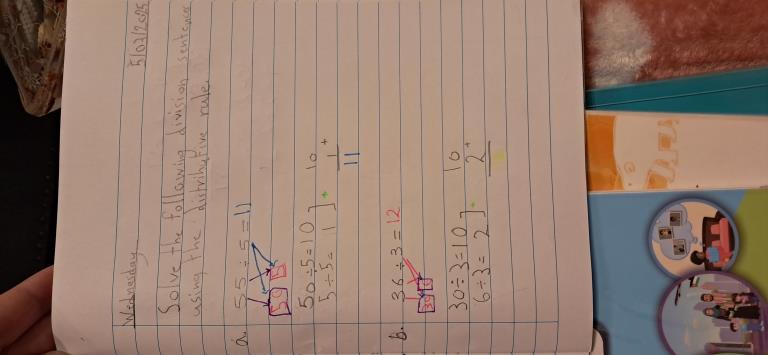 Wednesday 5/02/2025
Solve the following division sentences
using the distributive rule.
a. 55 ÷ 5 = 11
50 5
50÷5=10 ] + 10
5÷5= 1 1 +
11
b. 36 ÷ 3 = 12
30 6
30÷3=10 ] + 10
6÷3= 2 2 +